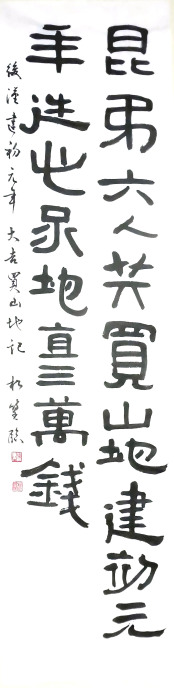 昆弟六人共買山地建初元
年造此冢地直三萬錢
後漢建初元年大吉買山地記